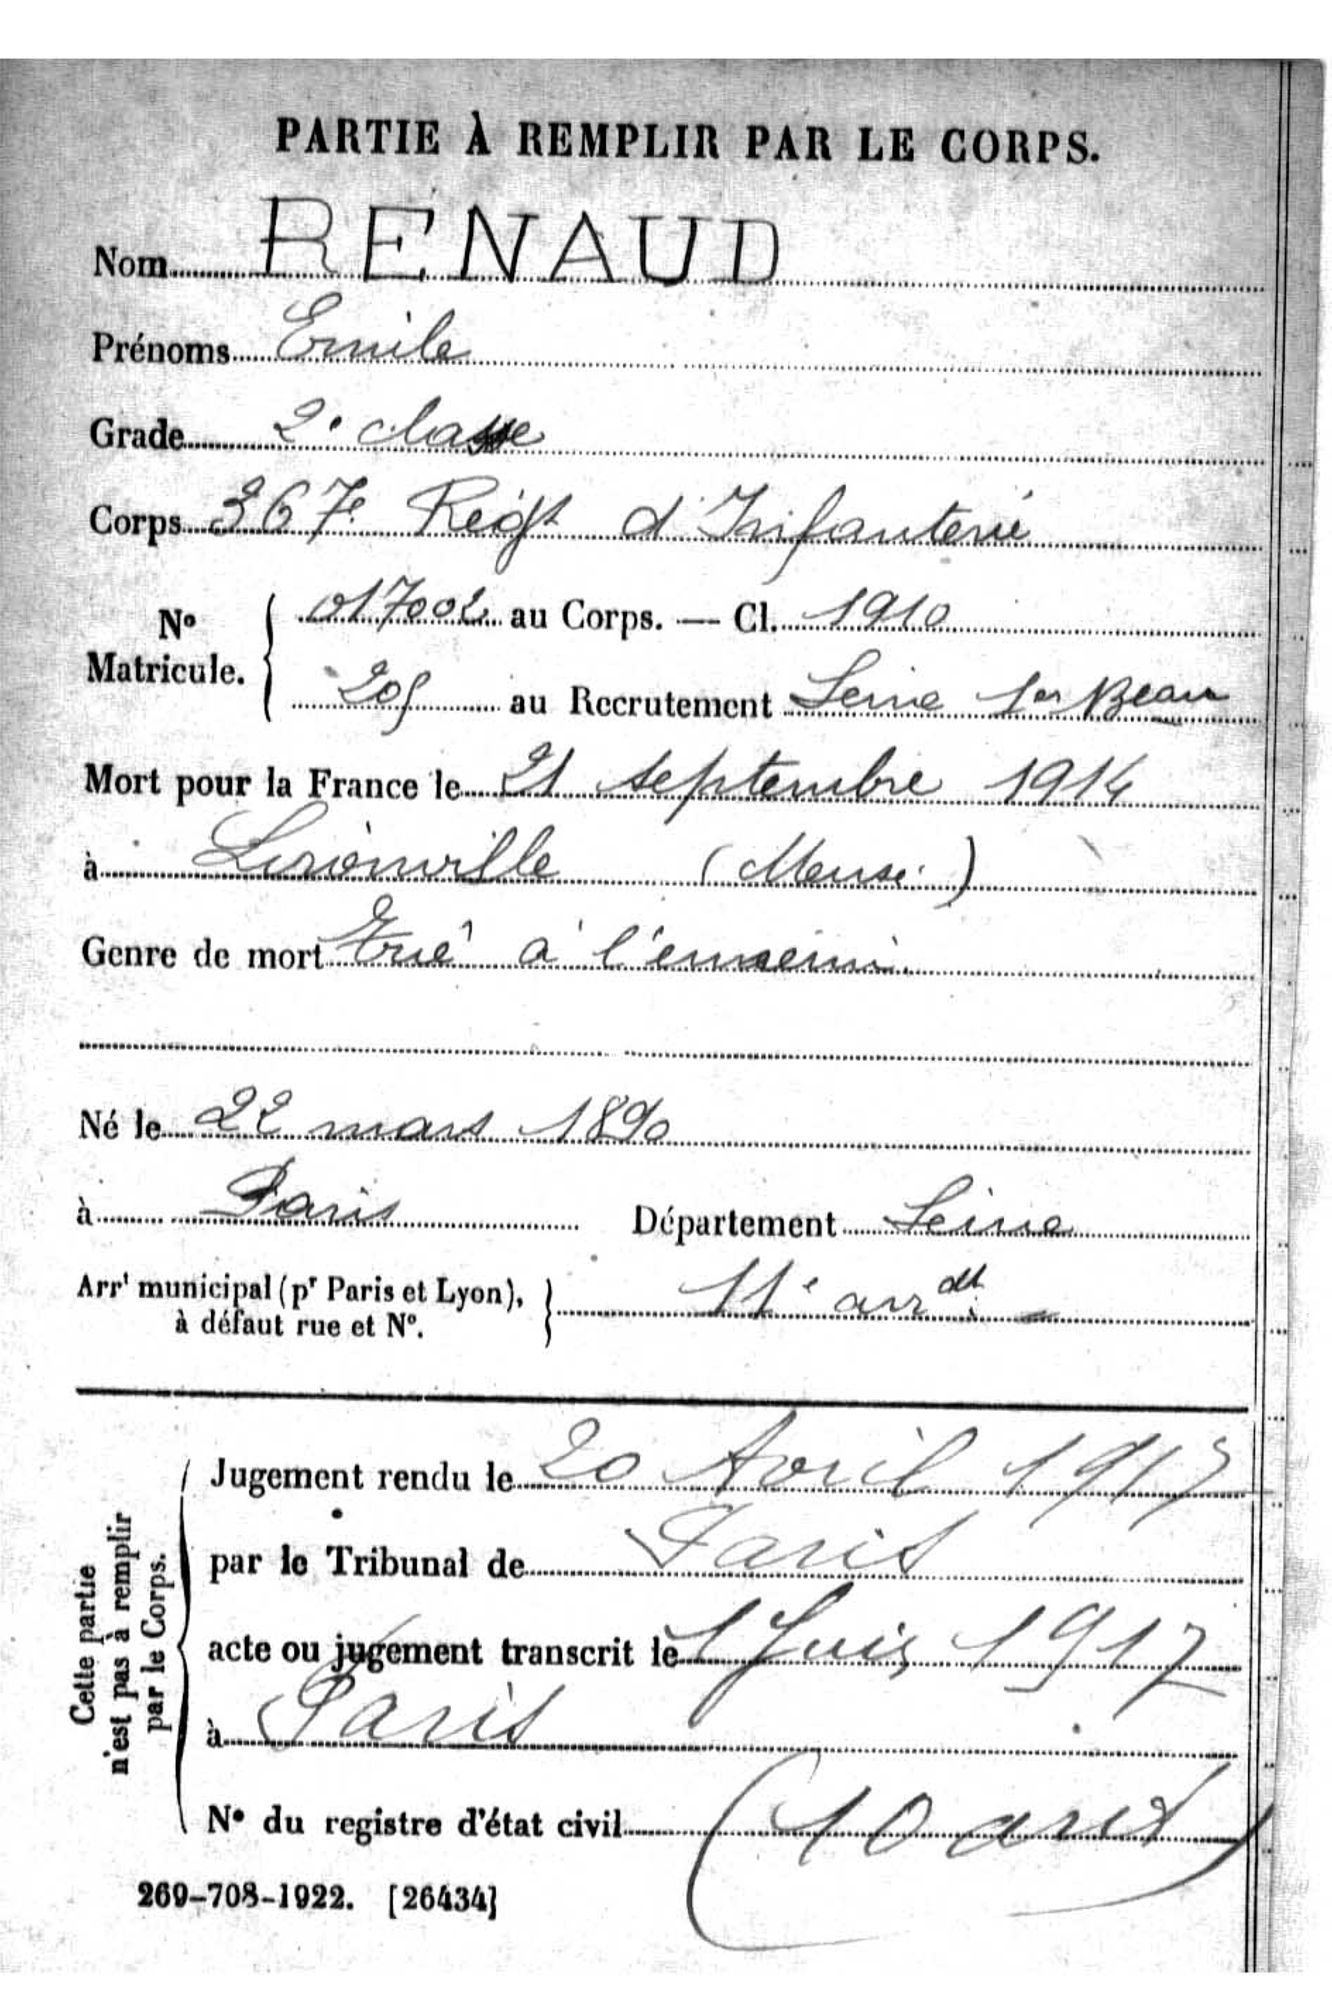 PARTIE À REMPLIR PAR LE CORPS.
Nom RENAUD
Prénoms Emile
Grade 2e classe
Corps 367e Régt d'Infanterie
No Matricule. 017002 au Corps. — Cl. 1910
205 au Recrutement Seine 1er Beau
Mort pour la France le 21 septembre 1914
à Lironville (Meuse)
Genre de mort Tué à l'ennemi.
Né le 22 mars 1890
à Paris Département Seine
Arrt municipal (pr Paris et Lyon), à défaut rue et No. 11e arrdt
Cette partie n'est pas à remplir par le Corps.
Jugement rendu le 20 Avril 1917
par le Tribunal de Paris
acte ou jugement transcrit le 1 Juin 1917
à Paris
No du registre d'état civil (10 arrt)
269-708-1922. [26434]